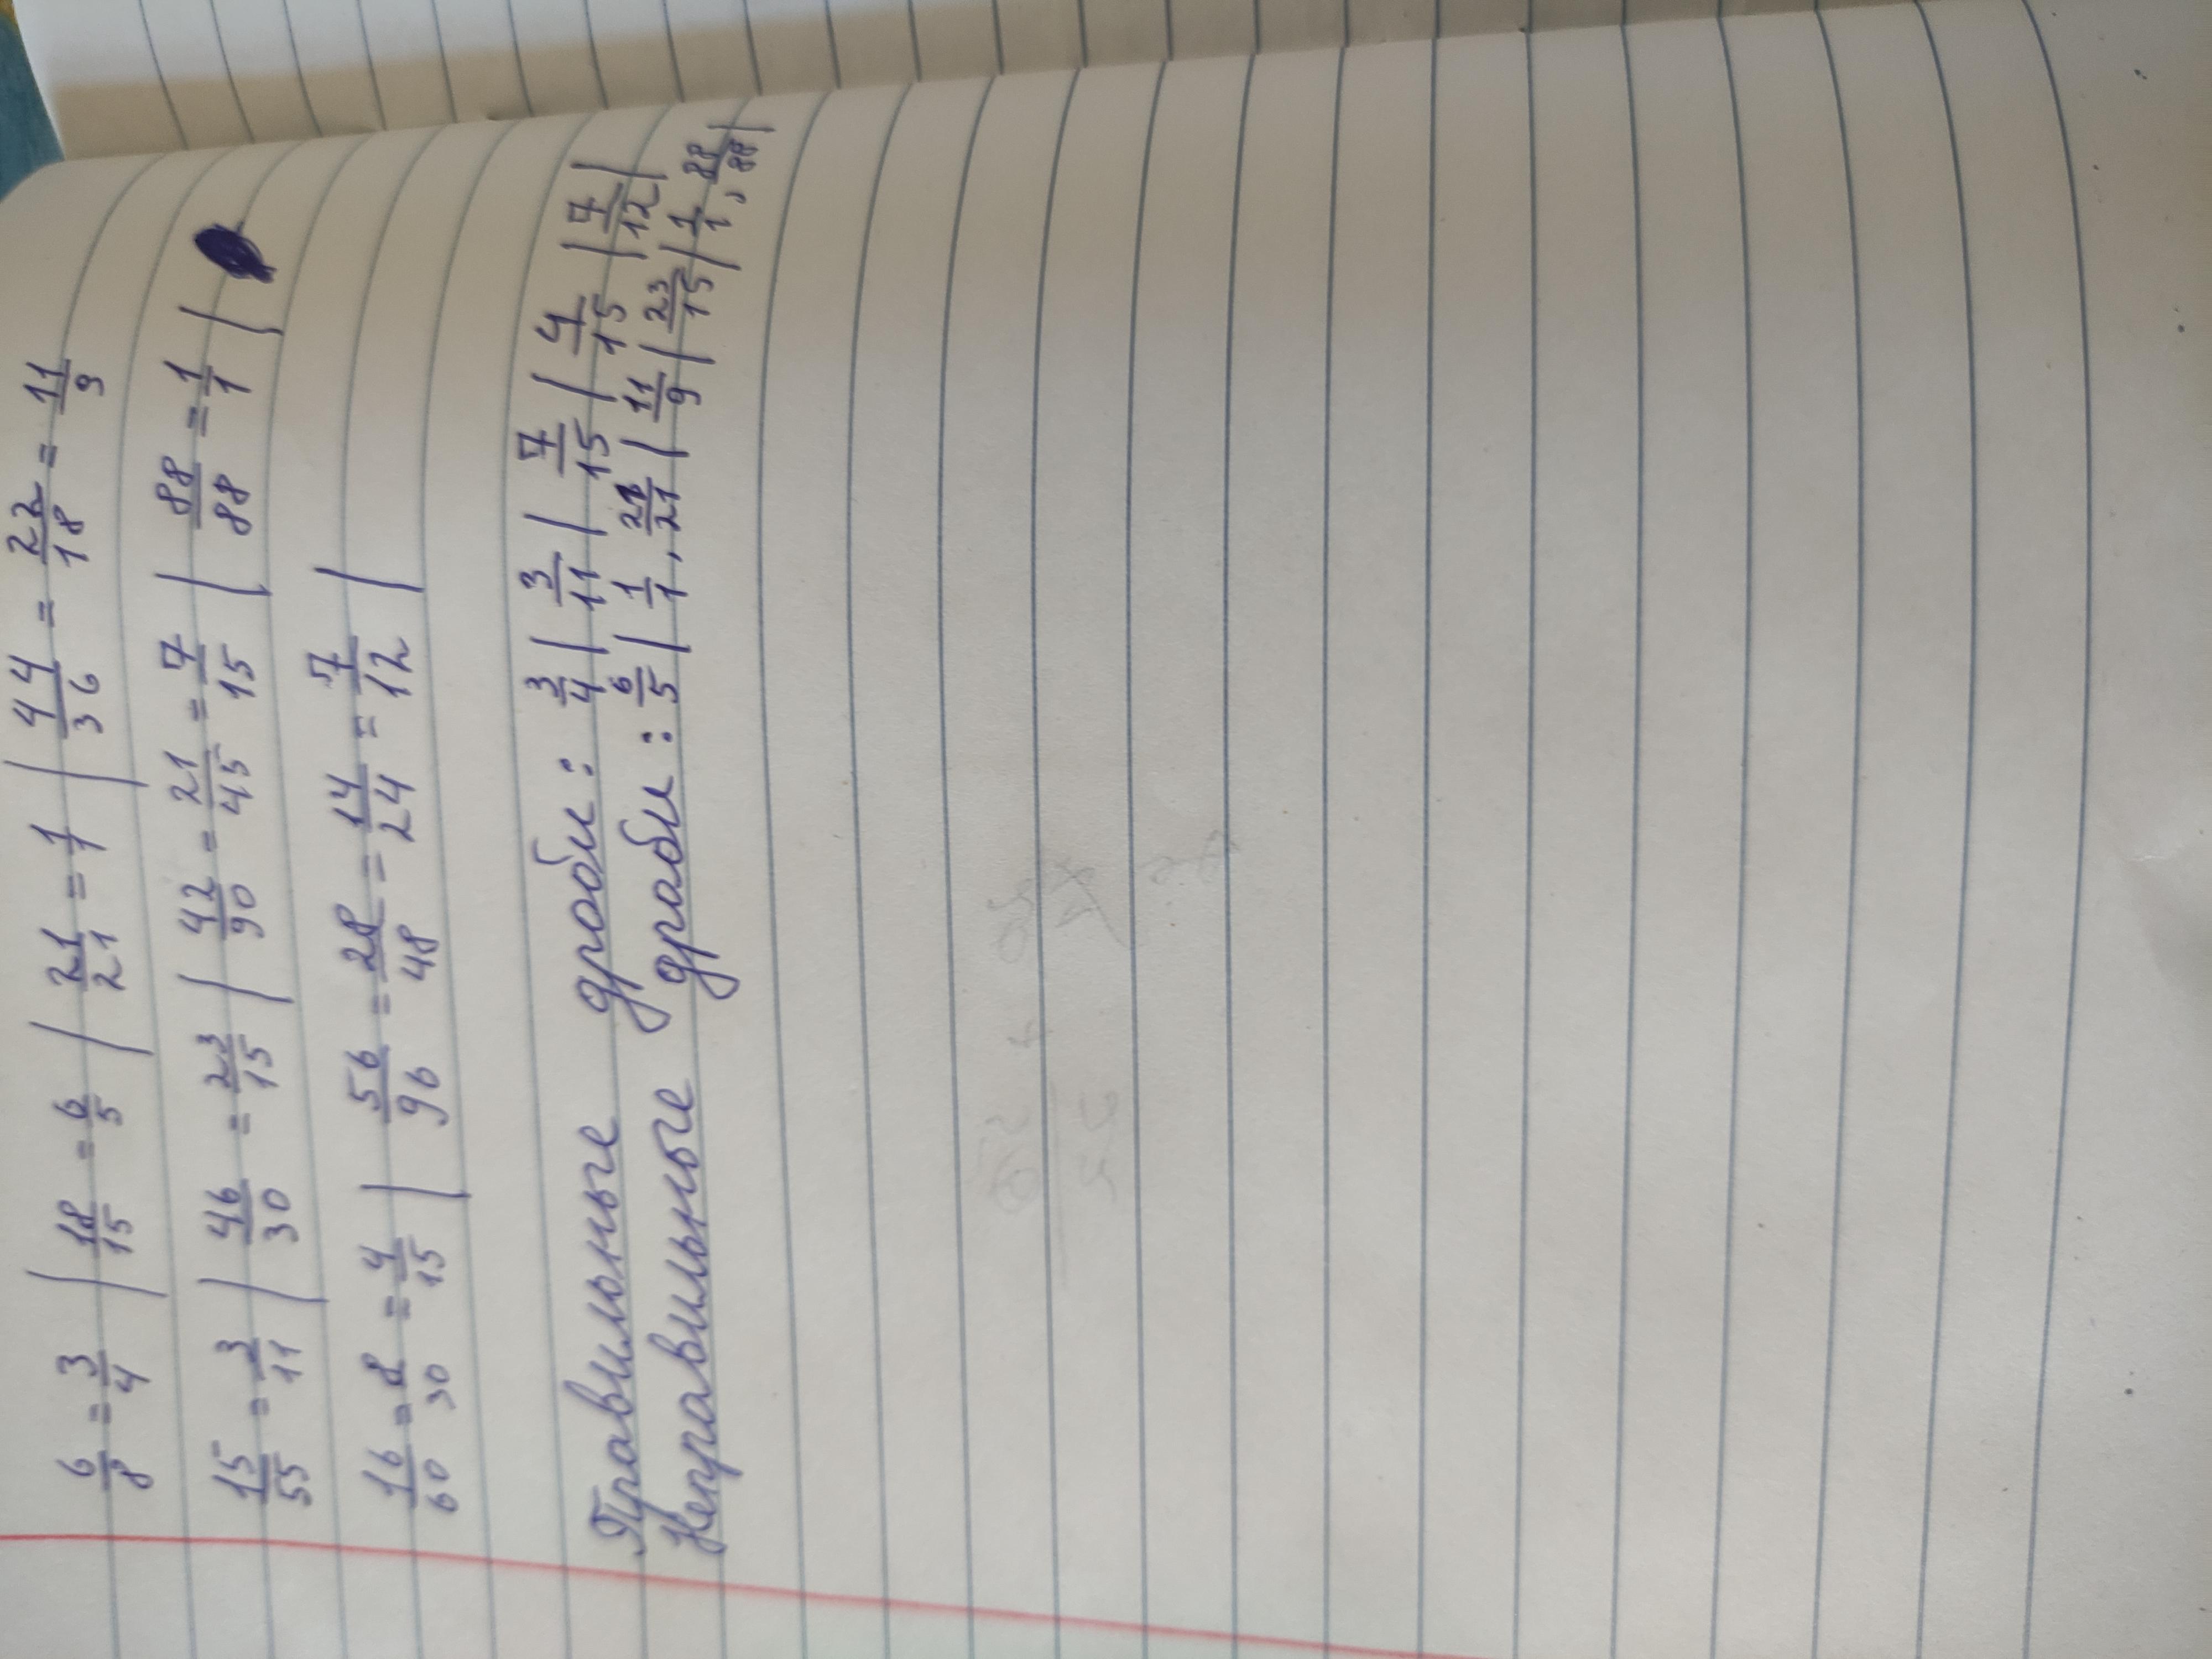 6/8 = 3/4 | 18/15 = 6/5 | 21/21 = 1 | 44/36 = 22/18 = 11/9
15/55 = 3/11 | 46/30 = 23/15 | 42/90 = 21/45 = 7/15 | 88/88 = 1/1 |
16/60 = 8/30 = 4/15 | 56/96 = 28/48 = 14/24 = 7/12 |
Правильные дроби: 3/4 | 3/11 | 7/15 | 4/15 | 7/12 |
Неправильные дроби: 6/5 | 1/1, 21/21 | 11/9 | 23/15 | 1/1, 88/88 |